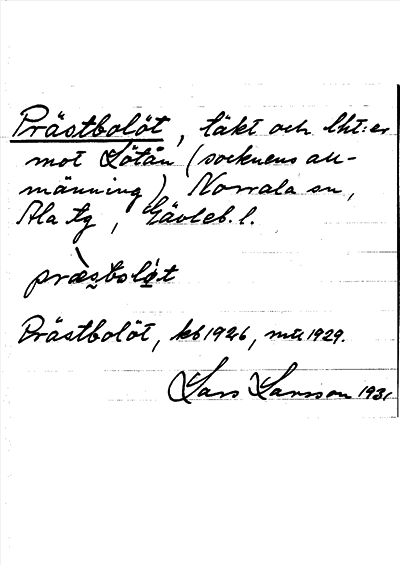 Prästbolöt, täkt och lht:er
mot Lötån (socknens all-
männing), Norrala sn,
Ala tg, Gävleb. l.
præsbolöt
Prästbolöt, kb 1926, mtl 1929.
Lars Larsson 1931